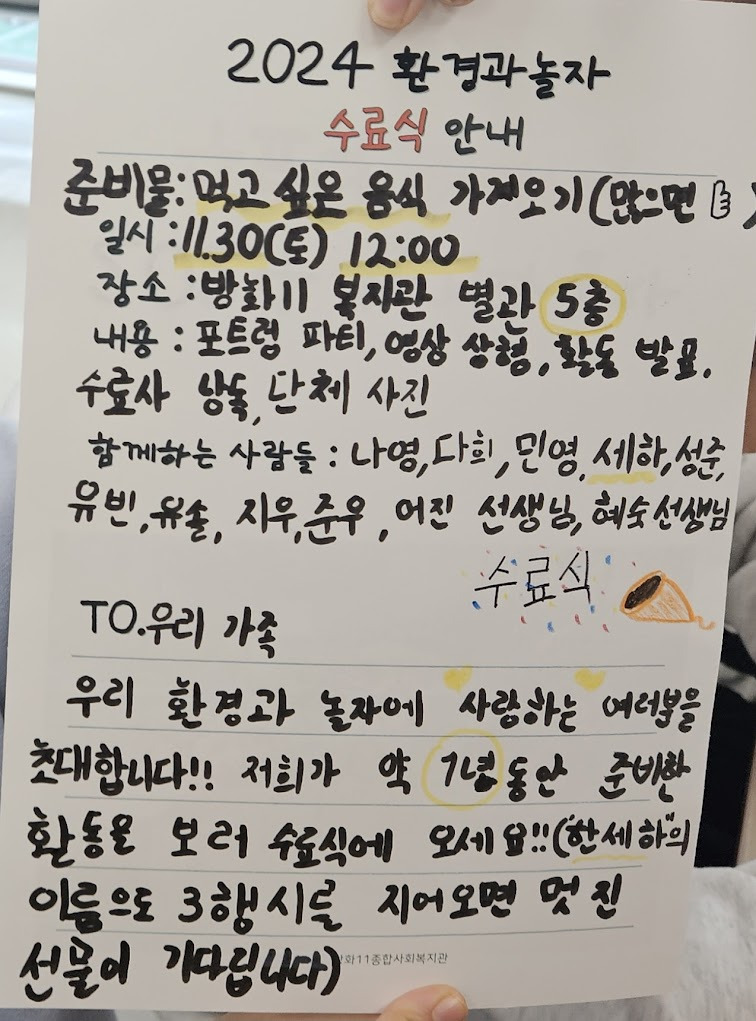 2024 환경과놀자
수료식 안내
준비물: 먹고 싶은 음식 가져오기(많으면 👍)
일시 : 11.30(토) 12:00
장소 : 방화11 복지관 별관 5층
내용 : 포트럭 파티, 영상 상형, 활동 발표,
수료사 낭독, 단체 사진
함께하는 사람들 : 나영, 다희, 민영, 세하, 성준,
유빈, 유솔, 지우, 준우, 어진 선생님, 혜숙선생님
수료식
TO.우리 가족
우리 환경과 놀자에 사랑하는 여러분을
초대합니다!! 저희가 약 1년동안 준비한
활동을 보러 수료식에 오세요!!("한세하"의
이름으로 3행시를 지어오면 멋진
선물이 기다립니다)
화11종합사회복지관